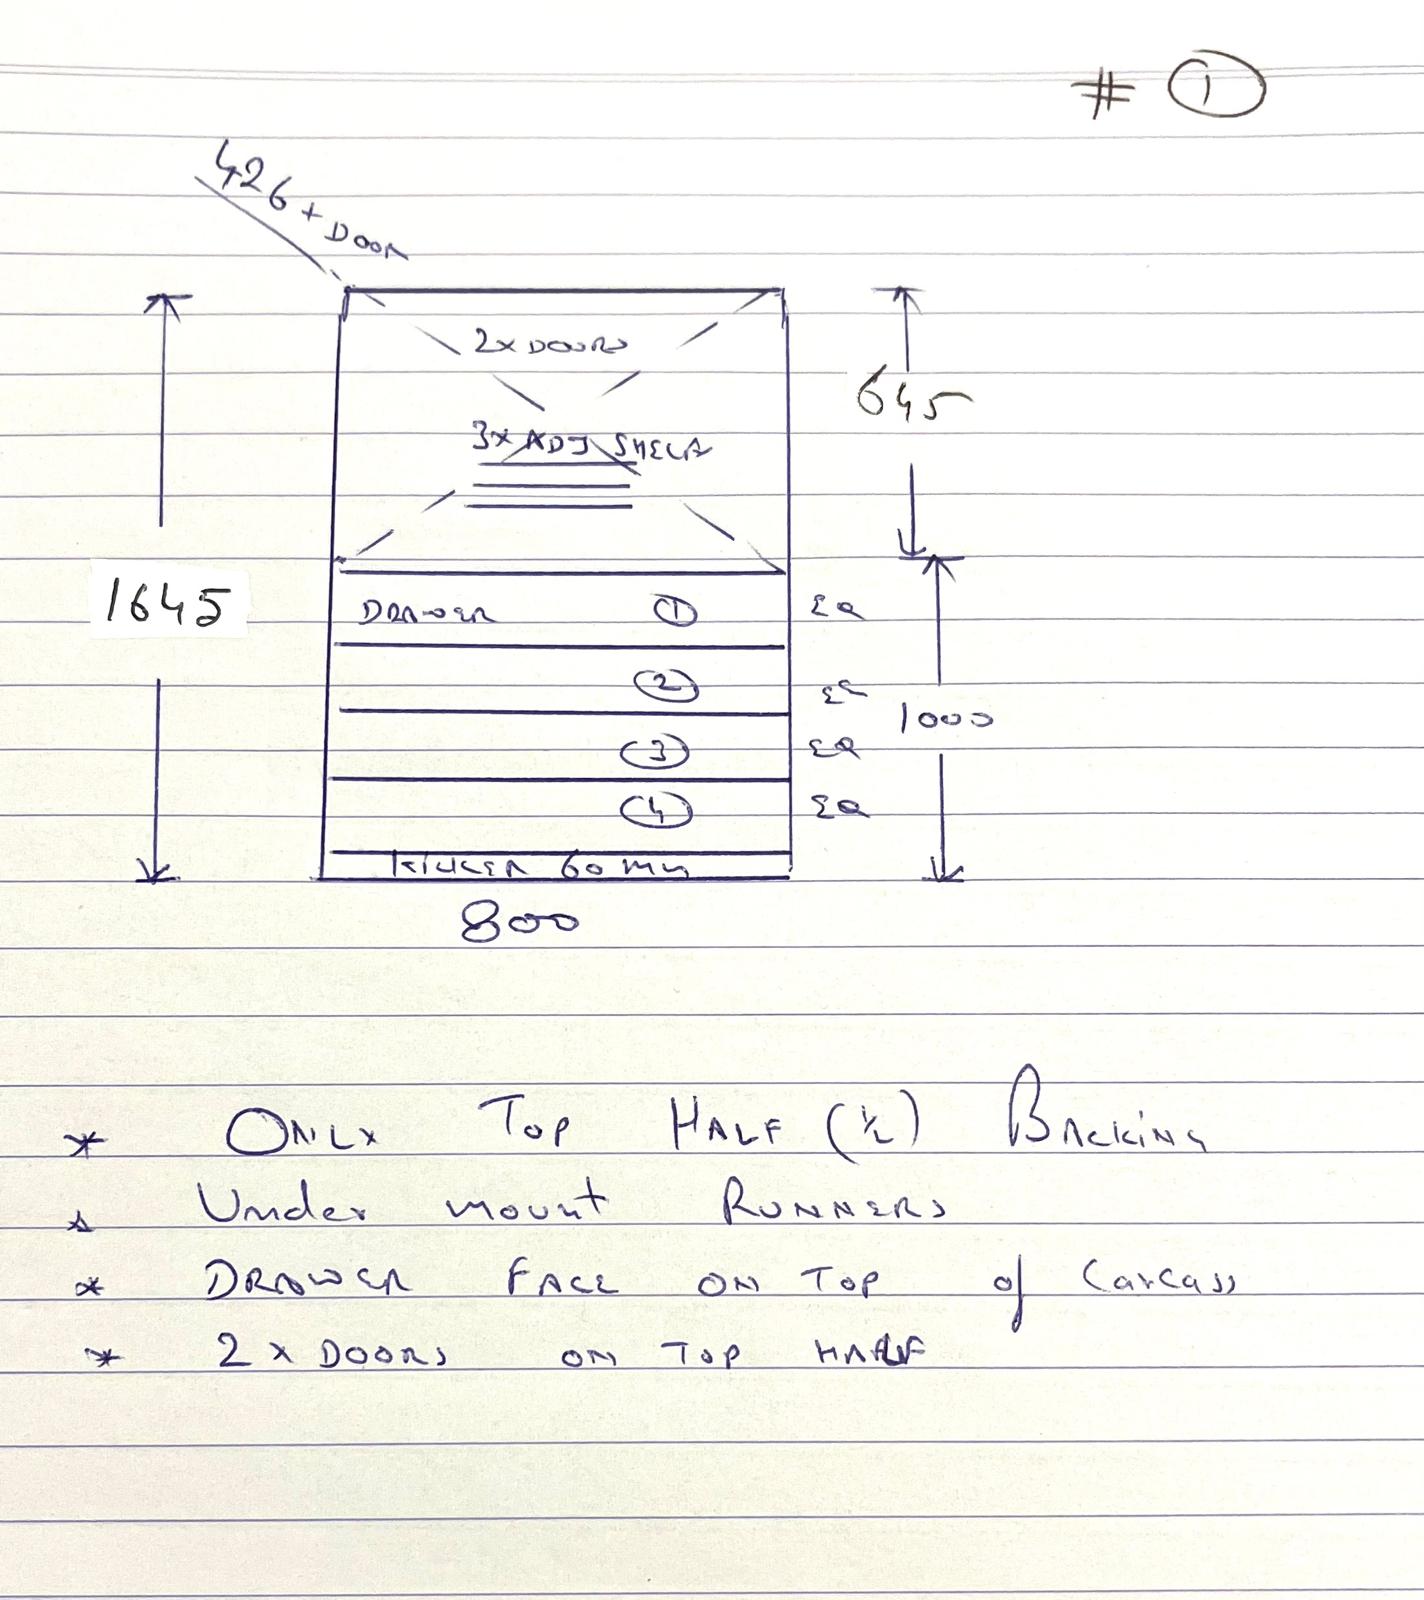 # 1
426 + DOOR
2x DOORS
645
3x ADJ SHELF
1645
DRAWER 1 EQ
2 EQ
1000
3 EQ
4 EQ
KICKER 60 mm
800
* ONLY TOP HALF (1/2) BACKING
* Under mount RUNNERS
* DRAWER FACE ON TOP of Carcass
* 2 x DOORS ON TOP HALF